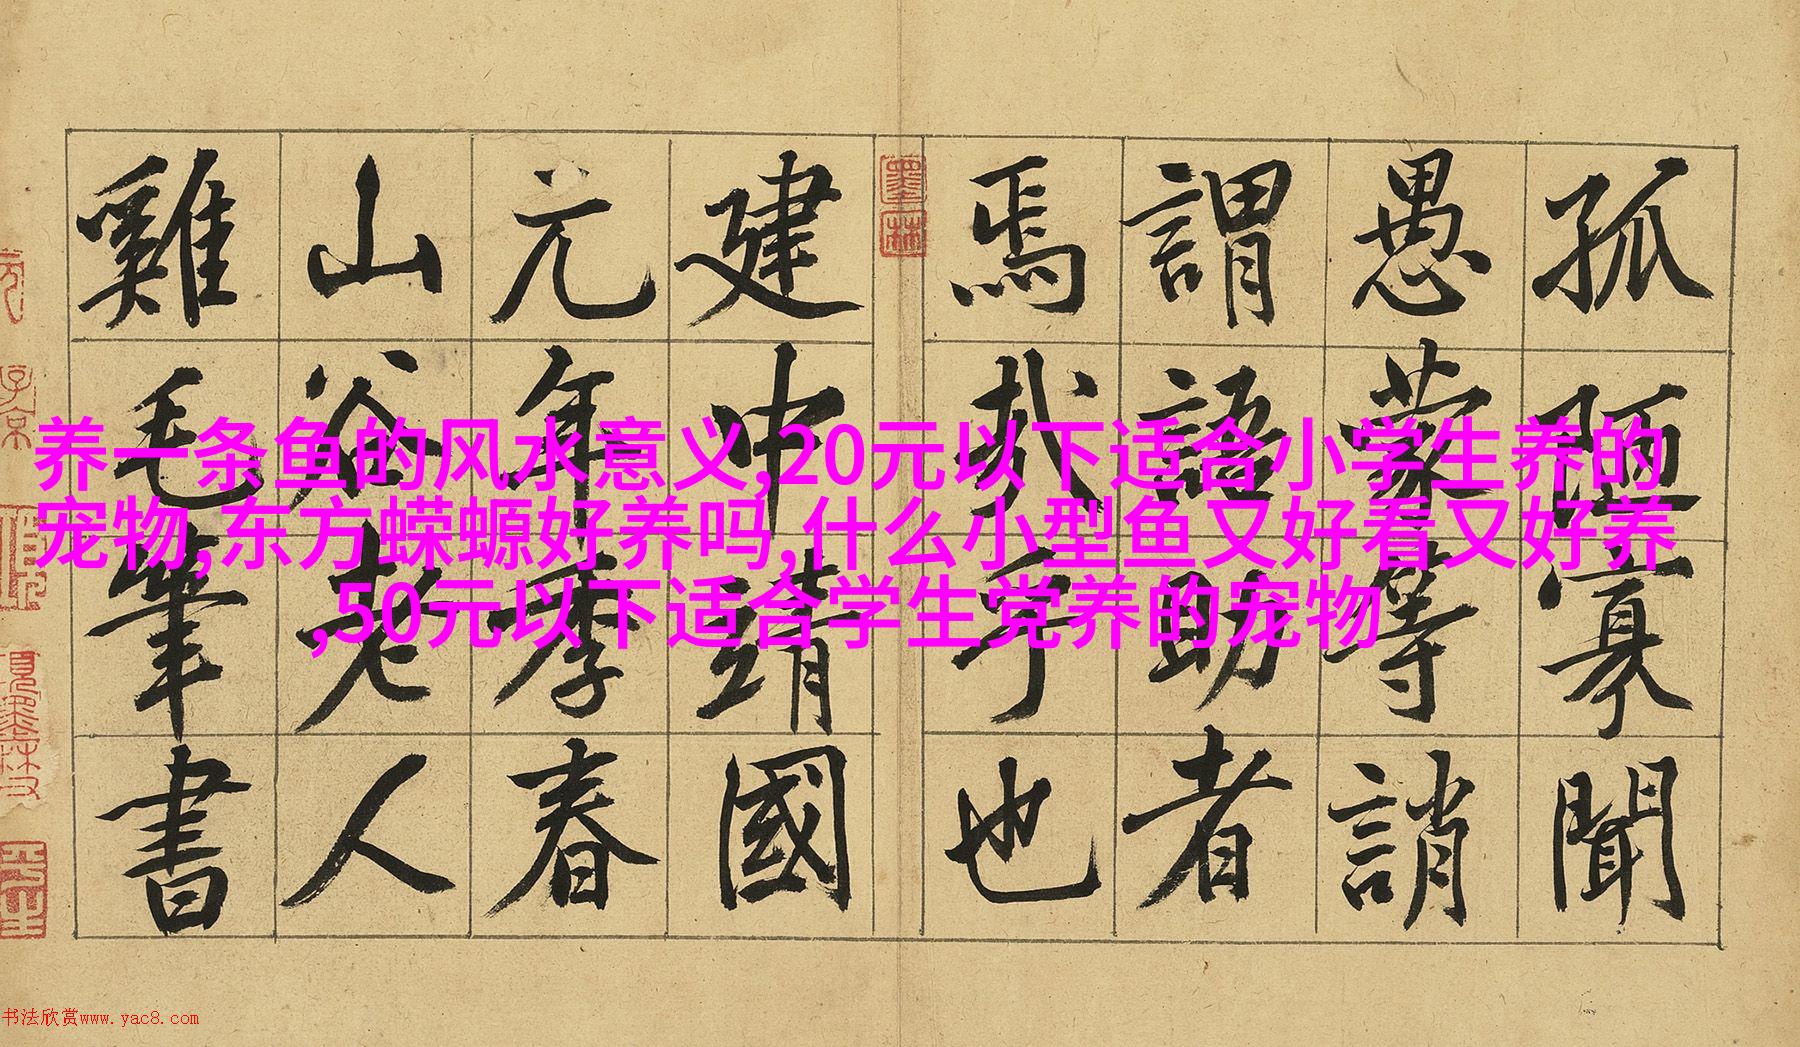 孤陋寡聞
愚蒙等誚
謂語助者
焉哉乎也
建中靖國
元年季春
山谷老人
雞毛筆書
墨林
养一条鱼的风水意义,20元以下适合小学生养的
宠物,东方蝾螈好养吗,什么小型鱼又好看又好养
,50元以下适合学生党养的宠物
书法欣赏www.yac8.com